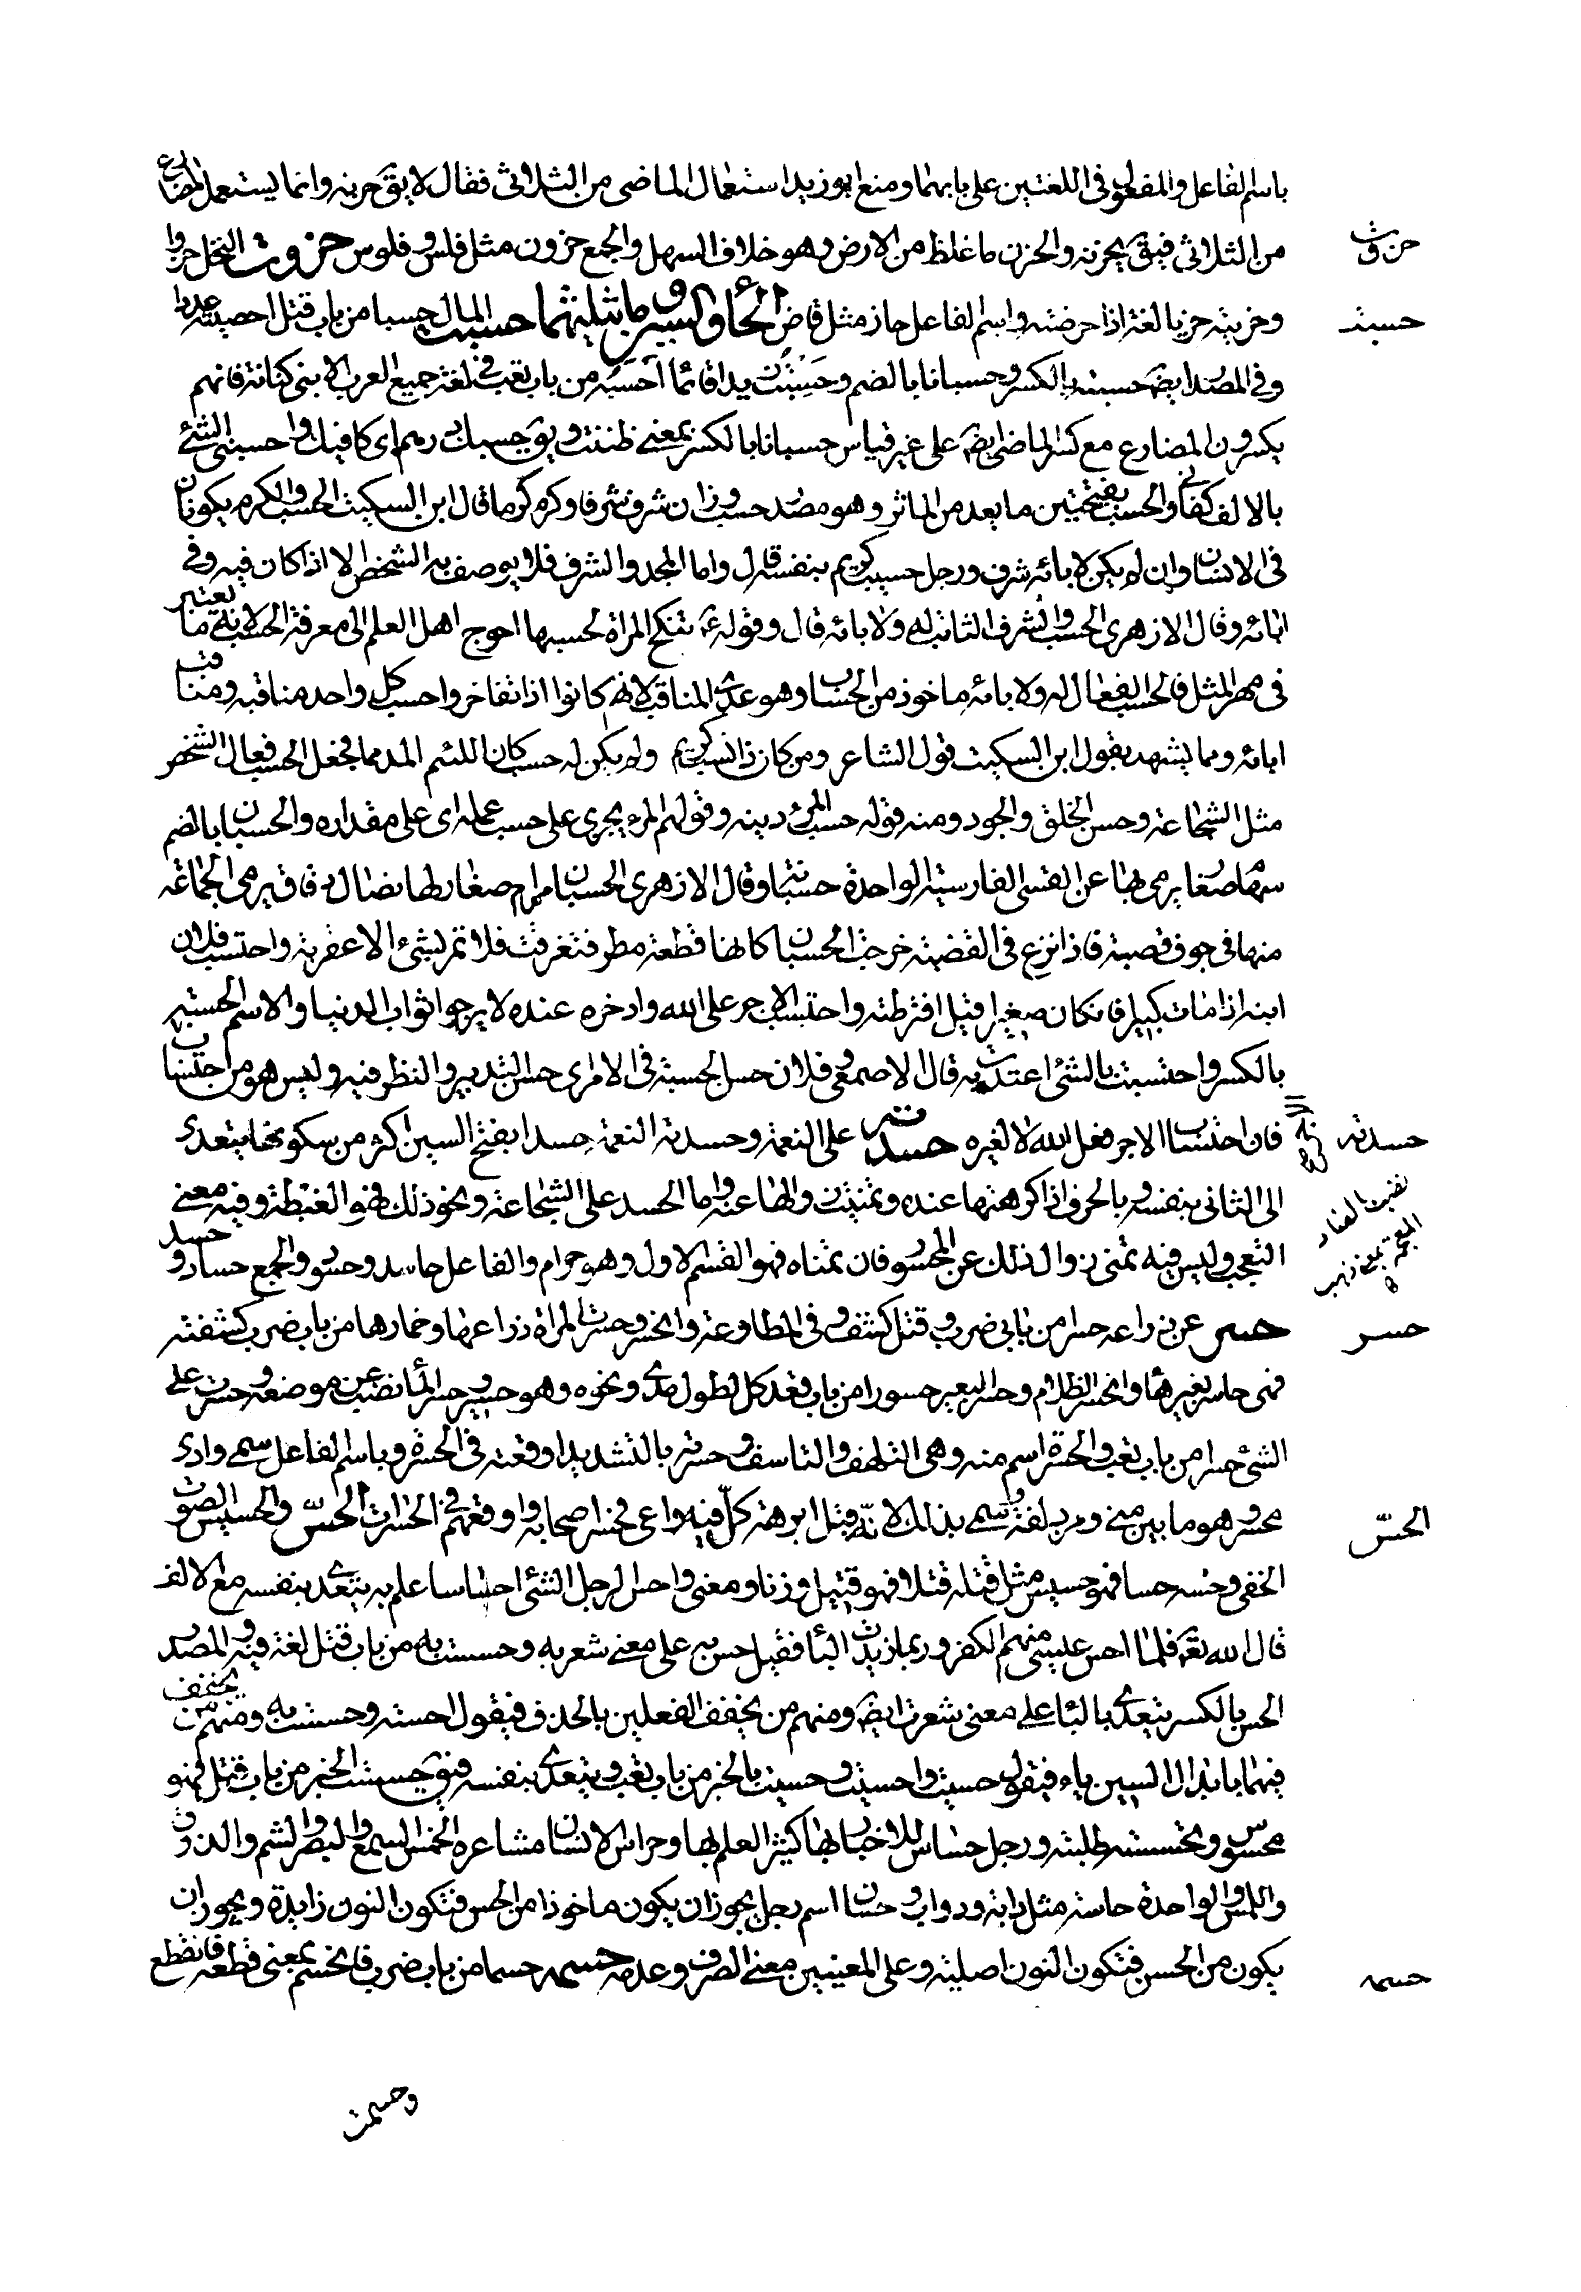 باسم الفاعل والمفعول فى اللغتين على بابهما ومنع ابو زيد استعمال الماضى من الثلاثى فقال لا يق حزنه وانما يستعمل المضارع
حزوت
من الثلاثى فيق يحزنه والحزن ما غلظ من الارض وهو خلاف السهل والجمع حزون مثل فلس وفلوس حزوت النخل حزوا
حسبت
وحزيته حزيا لغة اذا خرصته واسم الفاعل حاز مثل قاض الحا والسين وما يثلثهما حسبت المال حسبا من باب قتل احصيته عددا
وفى المصدر ايض حسبته بالكسر وحسبانا بالضم وحسبت زيدا قائما احسبه من باب تعب فى لغة جميع العرب الا بنى كنانة فانهم
يكسرون المضارع مع كسر الماضى ايض على غير قياس حسبانا بالكسر بمعنى ظننت ويق حسبك درهم اى كافيك واحسبنى الشئ
بالالف كفانى والحسب بفتحتين ما يعد من الماثر وهو مصدر حسب وزان شرف شرفا وكرم كرما قال ابن السكيت الحسب والكرم يكونان
فى الانسان وان لم يكن لابائه شرف ورجل حسيب كريم بنفسه قال واما المجد والشرف فلا يوصف به الشخص الا اذا كان فيه وفى
ابائه وقال الازهرى الحسب والشرف الثابت له ولابائه قال وقوله ع تنكح المراة لحسبها احوج اهل العلم الى معرفة الحسب لانه مما يعتبر
فى مهر المثل فالحسب الفعال له ولابائه ماخوذ من الحساب وهو عد المناقب لانهم كانوا اذا تفاخروا حسب كل واحد مناقبه ومناقب
ابائه ومما يشهد بقول ابن السكيت قول الشاعر ومن كان ذا نسب كريم ولم يكن له حسب كان اللئيم المذمما فجعل الحسب فعال الشخص
مثل الشجاعة وحسن الخلق والجود ومنه قوله حسب المرئ دينه وقولهم المرء يجرى على حسب عمله اى على مقداره والحسبان بالضم
سهام صغار يرمى بها عن القسى الفارسية الواحدة حسبانة وقال الازهرى الحسبان مرام صغار لها نصال دقاق يرمى الجماعة
منها فى جوف قصبة فاذا نزع فى القصبة خرجت الحسبان كانها قطعة مطر فتفرقت فلا تمر بشئ الا عقرته واحتسب فلان
ابنه اذا مات كبيرا فان كان صغيرا قيل افترطه واحتسب الاجر على الله وادخره عنده لا يرجوا ثواب الدنيا والاسم الحسبة
بالكسر واحتسبت بالشئ اعتددت به قال الاصمعى وفلان حسن الحسبة فى الامر اى حسن التدبير والنظر فيه وليس هو من احتساب
حسدته
فان احتساب الاجر فعل الله لا لغيره حسدته على النعمة وحسدته النعمة حسدا بفتح السين اكثر من سكونها يتعدى
الى الثانى بنفسه وبالحرف اذا كرهتها عنده وتمنيت زوالها عنه واما الحسد على الشجاعة ونحو ذلك فهو الغبطة وفيه معنى
التعجب وليس فيه تمنى زوال ذلك عن المحسود فان تمناه فهو القسم الاول وهو حرام والفاعل حاسد وحسود والجمع حساد وحسد
حسر
حسر عن ذراعه حسرا من بابى ضرب وقتل كشف وفى المطاوعة وانحسر وحسرت المراة ذراعها وخمارها من باب ضرب كشفته
فهى حاسر بغير هاء وانحسر الظلام وحسر البعير حسورا من باب قعد كل لطول مدى ونحوه وهو حسير وحسر الماء نضب عن موضعه وحسرت على
الشئ حسرا من باب تعب والحسرة اسم منه وهى التلهف والتاسف وحسرته بالتشديد اوقعته فى الحسرة وباسم الفاعل سمى وادى
الحسّ
محسر وهو ما بين منى ومزدلفة وسمى بذلك لانّه قيل ابرهة كلّ فيه واعى فحسر اصحابه واوقعهم فى الحسرات الحسّ والحسيس الصوت
الخفى وحسه حسا فهو حسيس مثل قتله قتلا فهو قتيل وزنا ومعنى واحس الرجل الشئ احساسا علم به يتعدى بنفسه مع الالف
قال الله تع فلما احس عيسى منهم الكفر وربما زيدت البا فقيل احس به على معنى شعر به وحسست به من باب قتل لغة فيه والمصدر
الحس بالكسر يتعدى بالبا على معنى شعرت ايض ومنهم من يخفف الفعلين بالحذف فيقول احسته وحست به ومنهم من يخفف
فيهما بابدال السين ياء فيقول حسيت واحسيت وحسيت بالخبر من باب تعب ويتعدى بنفسه فيق حسست الخبر من باب قتل فهو
محسوس وتحسسته طلبته ورجل حساس للاخبار بها كثير العلم بها وحواس الانسان مشاعره الخمس السمع والبصر والشم والذوق
واللمس الواحدة حاسة مثل دابة ودواب وحسان اسم رجل يجوز ان يكون ماخوذا من الحس فتكون النون زايدة ويجوز ان
حسمه
يكون من الحسن فتكون النون اصلية وعلى المعنيين معنى الصرف وعدمه حسمه حسما من باب ضرب فانحسم بمعنى قطعه فانقطع
وحسمت